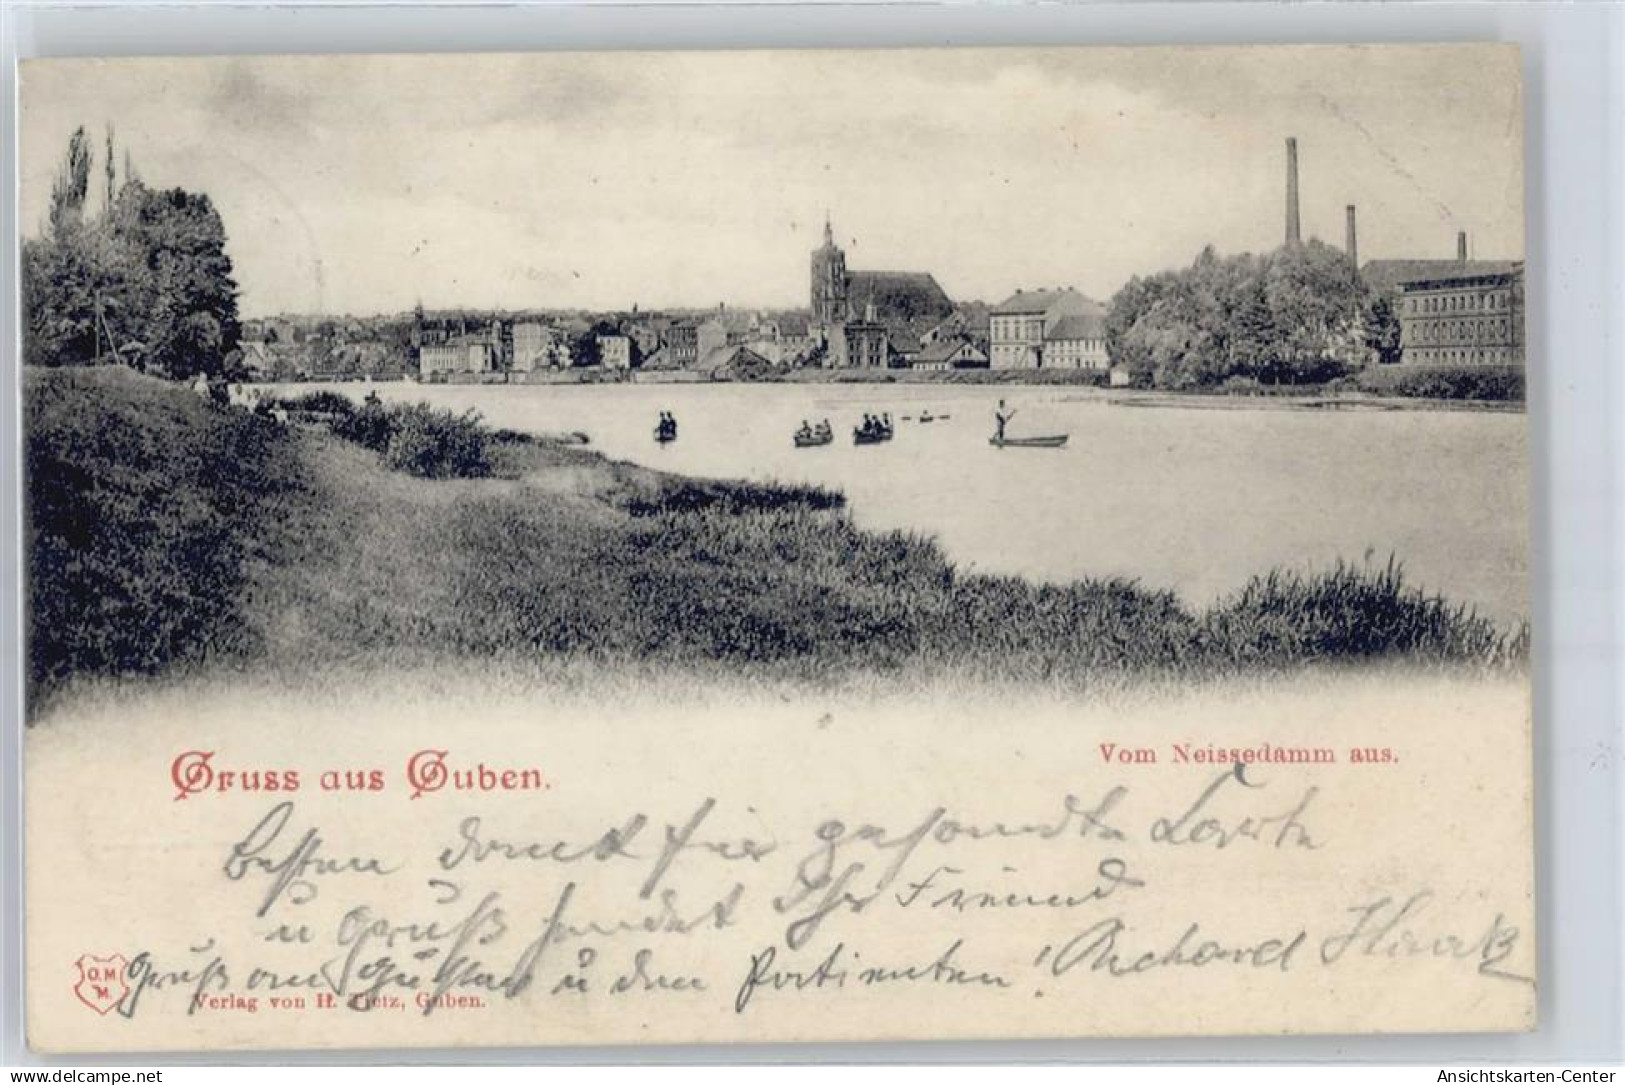 Gruss aus Guben.
Vom Neissedamm aus.
Besten Dank für gesandte Karte
u Gruß sendet Ihr Freund
Gruß an Gustav u den Portierten! Richard
O.M
M.
Verlag von H. Tietz, Guben.
Ansichtskarten-Center
https://www.delcampe.net/